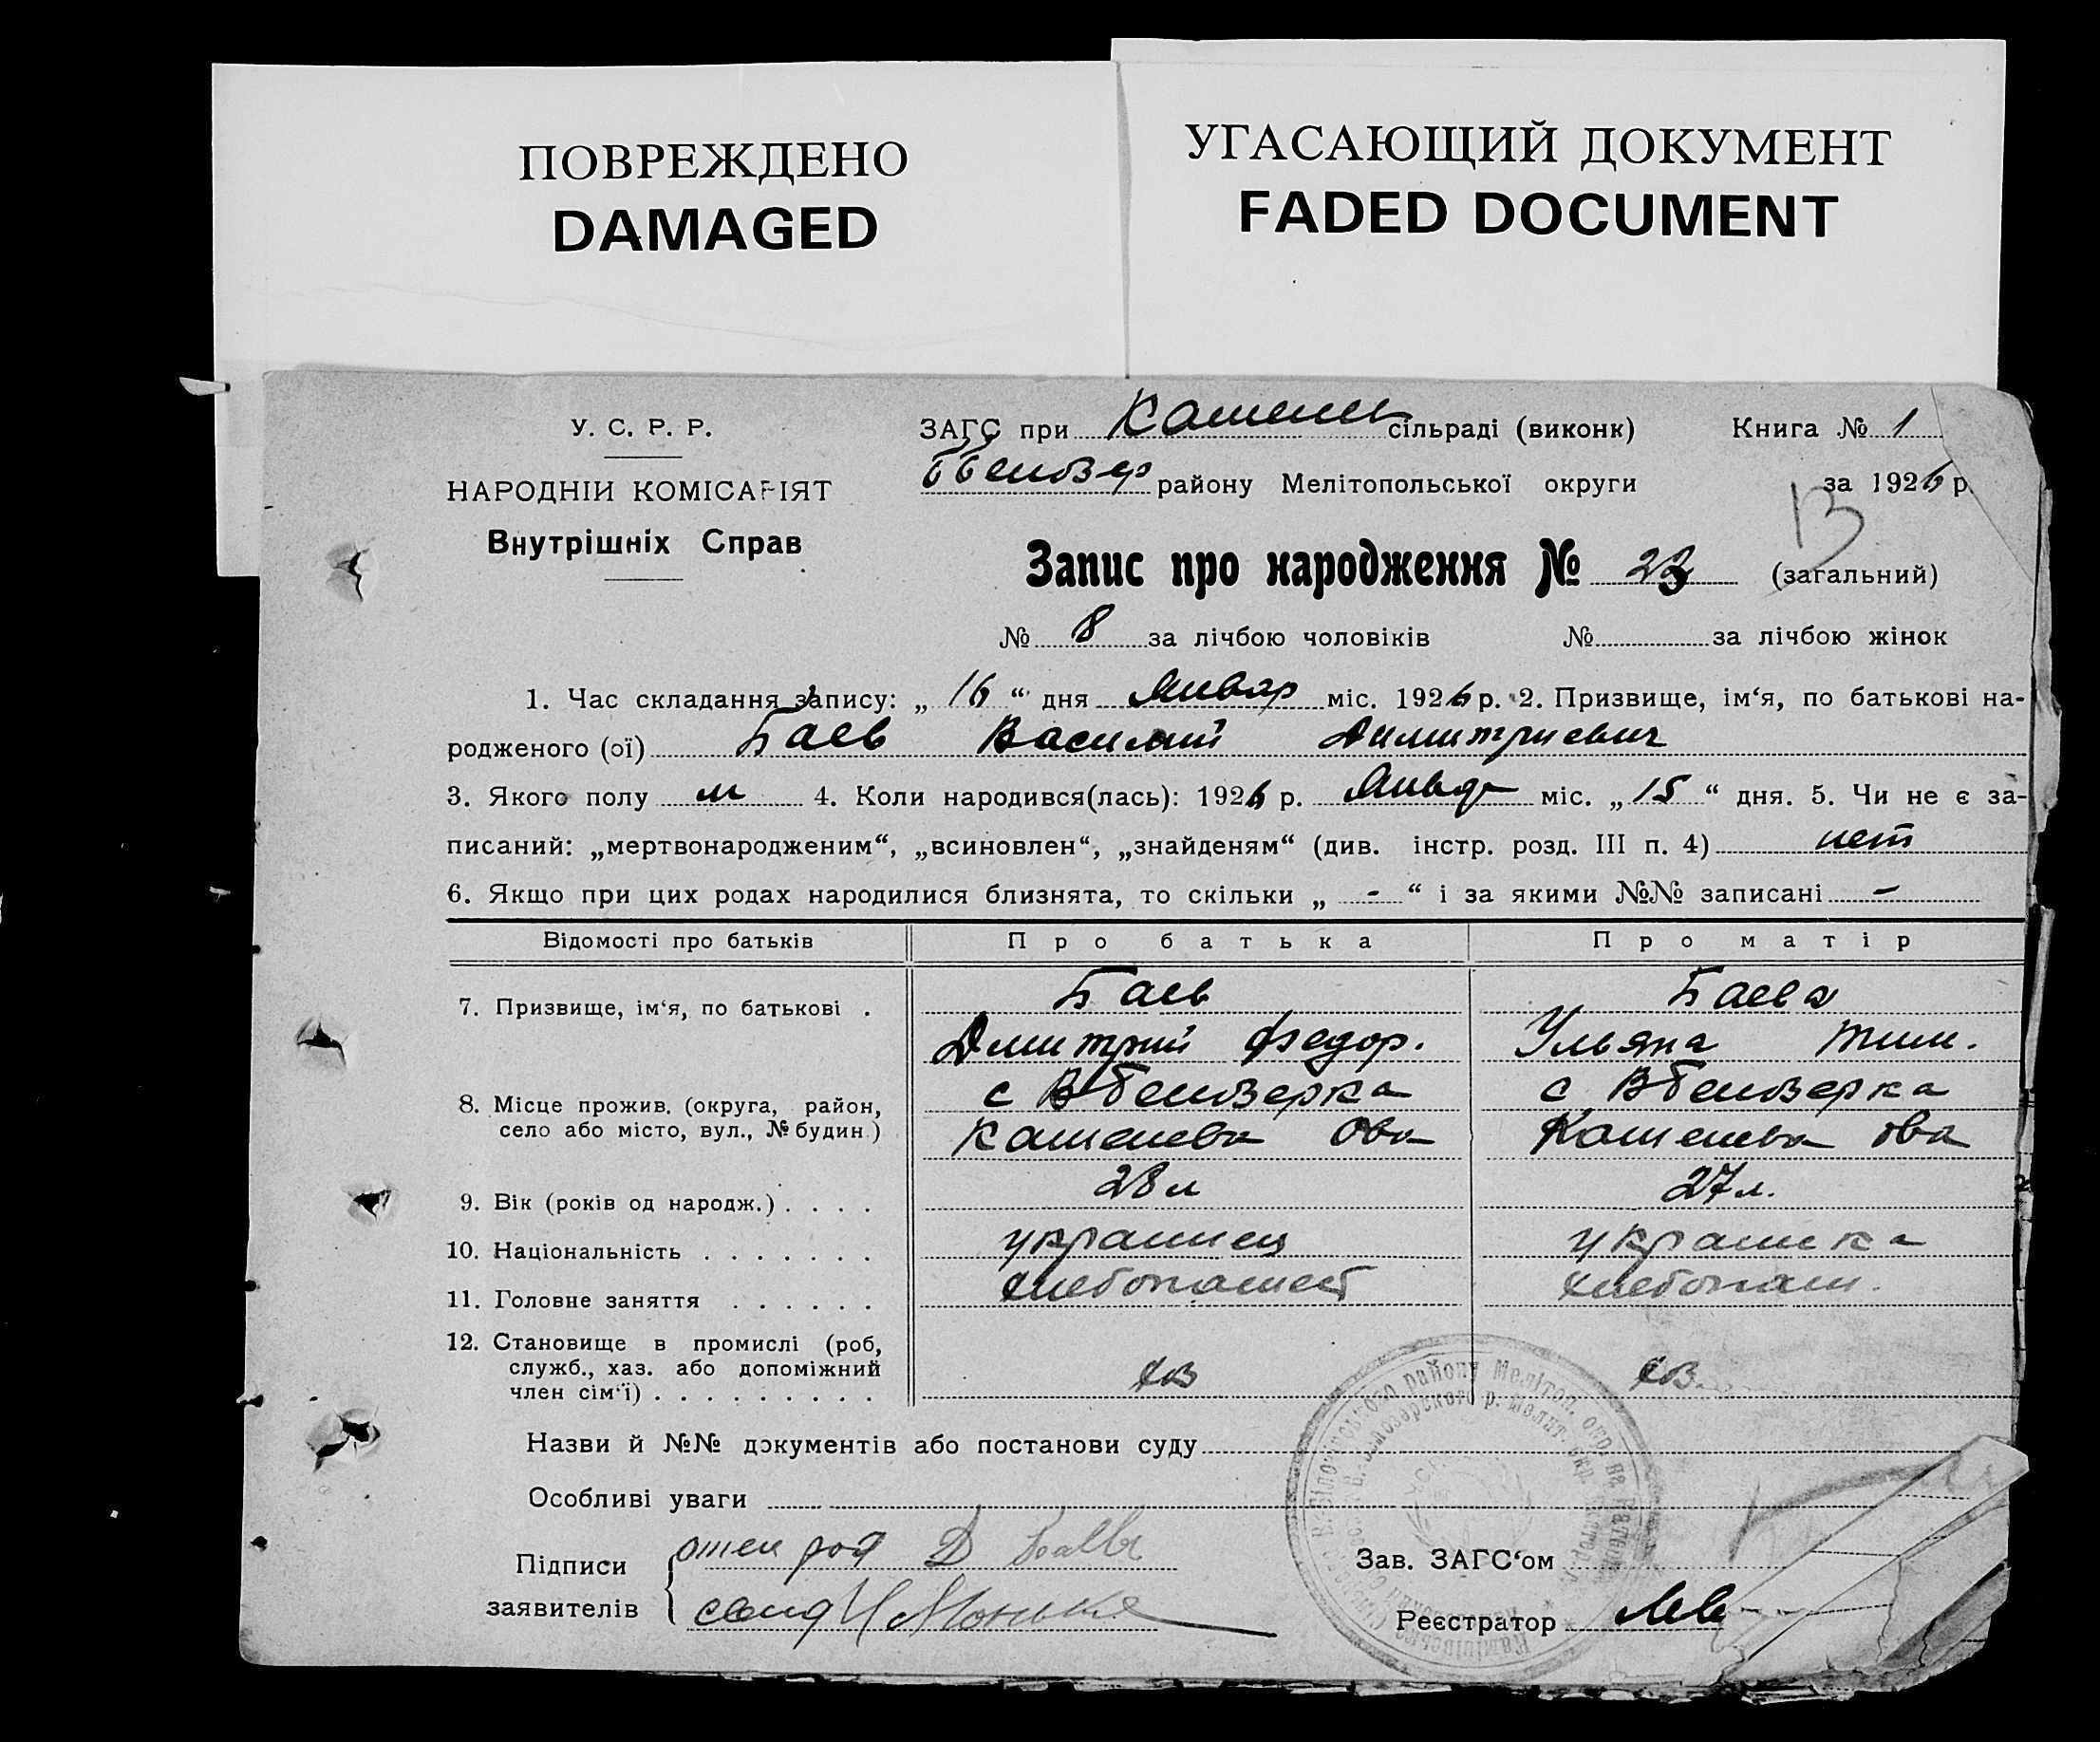 ПОВРЕЖДЕНО
DAMAGED
УГАСАЮЩИЙ ДОКУМЕНТ
FADED DOCUMENT
У. С. Р. Р.
НАРОДНІЙ КОМІСАРІЯТ
Внутрішніх Справ
ЗАГС при сільраді (виконк) Книга № 1
району Мелітопольської округи за 1926 р.
13
Запис про народження № (загальний)
№ 8 за лічбою чоловіків № за лічбою жінок
1. Час складання запису: „ 16 “ дня Январ міс. 1926 р. 2. Призвище, ім‘я, по батькові на-
родженого (ої) Баев Василий Димитриевич
3. Якого полу м 4. Коли народився(лась): 1926 р. Январ міс. „ 15 “ дня. 5. Чи не є за-
писаний: „мертвонародженим“, „всиновлен“, „знайденям“ (див. інстр. розд. III п. 4) нет
6. Якщо при цих родах народилися близнята, то скільки „ - “ і за якими №№ записані -
Відомості про батьків Про батька Про матір
7. Призвище, ім‘я, по батькові . Баев Баева
Дмитрий Федор. Ульяна Тим.
8. Місце прожив. (округа, район, с ВБелозерка с ВБелозерка
село або місто, вул., № будин.)
9. Вік (років од народж.) . . . . 28 л 27 л.
10. Національність . . . . . . . украинец украинка
11. Головне заняття . . . . . . хлебопашест хлебопаш.
12. Становище в промислі (роб,
служб., хаз. або допоміжний
член сім‘ї) . . . . . . . . . хоз хоз
Назви й №№ документів або постанови суду
Особливі уваги
Підписи отец Д Зав. ЗАГС‘ом
заявителів Реєстратор